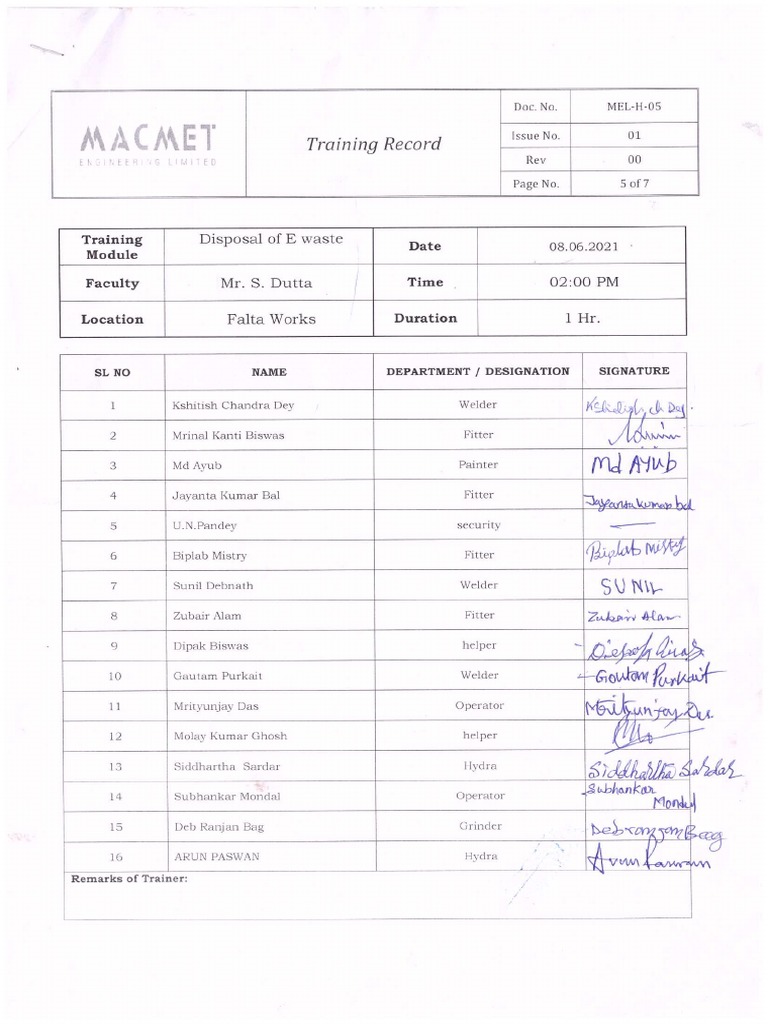 MACMET
ENGINEERING LIMITED
Training Record
Doc. No. MEL-H-05
Issue No. 01
Rev 00
Page No. 5 of 7
Training Module Disposal of E waste Date 08.06.2021
Faculty Mr. S. Dutta Time 02:00 PM
Location Falta Works Duration 1 Hr.
SL NO NAME DEPARTMENT / DESIGNATION SIGNATURE
1 Kshitish Chandra Dey Welder Kshitish ch Dey
2 Mrinal Kanti Biswas Fitter
3 Md Ayub Painter Md AYUB
4 Jayanta Kumar Bal Fitter Jayanta kumar bal
5 U.N.Pandey security
6 Biplab Mistry Fitter Biplab Mistry
7 Sunil Debnath Welder SUNIL
8 Zubair Alam Fitter Zubair Alam
9 Dipak Biswas helper
10 Gautam Purkait Welder Goutam Purkait
11 Mrityunjay Das Operator Mrityunjoy Das
12 Molay Kumar Ghosh helper
13 Siddhartha Sardar Hydra Siddhartha Sardar
14 Subhankar Mondal Operator Subhankar Mondal
15 Deb Ranjan Bag Grinder
16 ARUN PASWAN Hydra Arun Paswan
Remarks of Trainer: